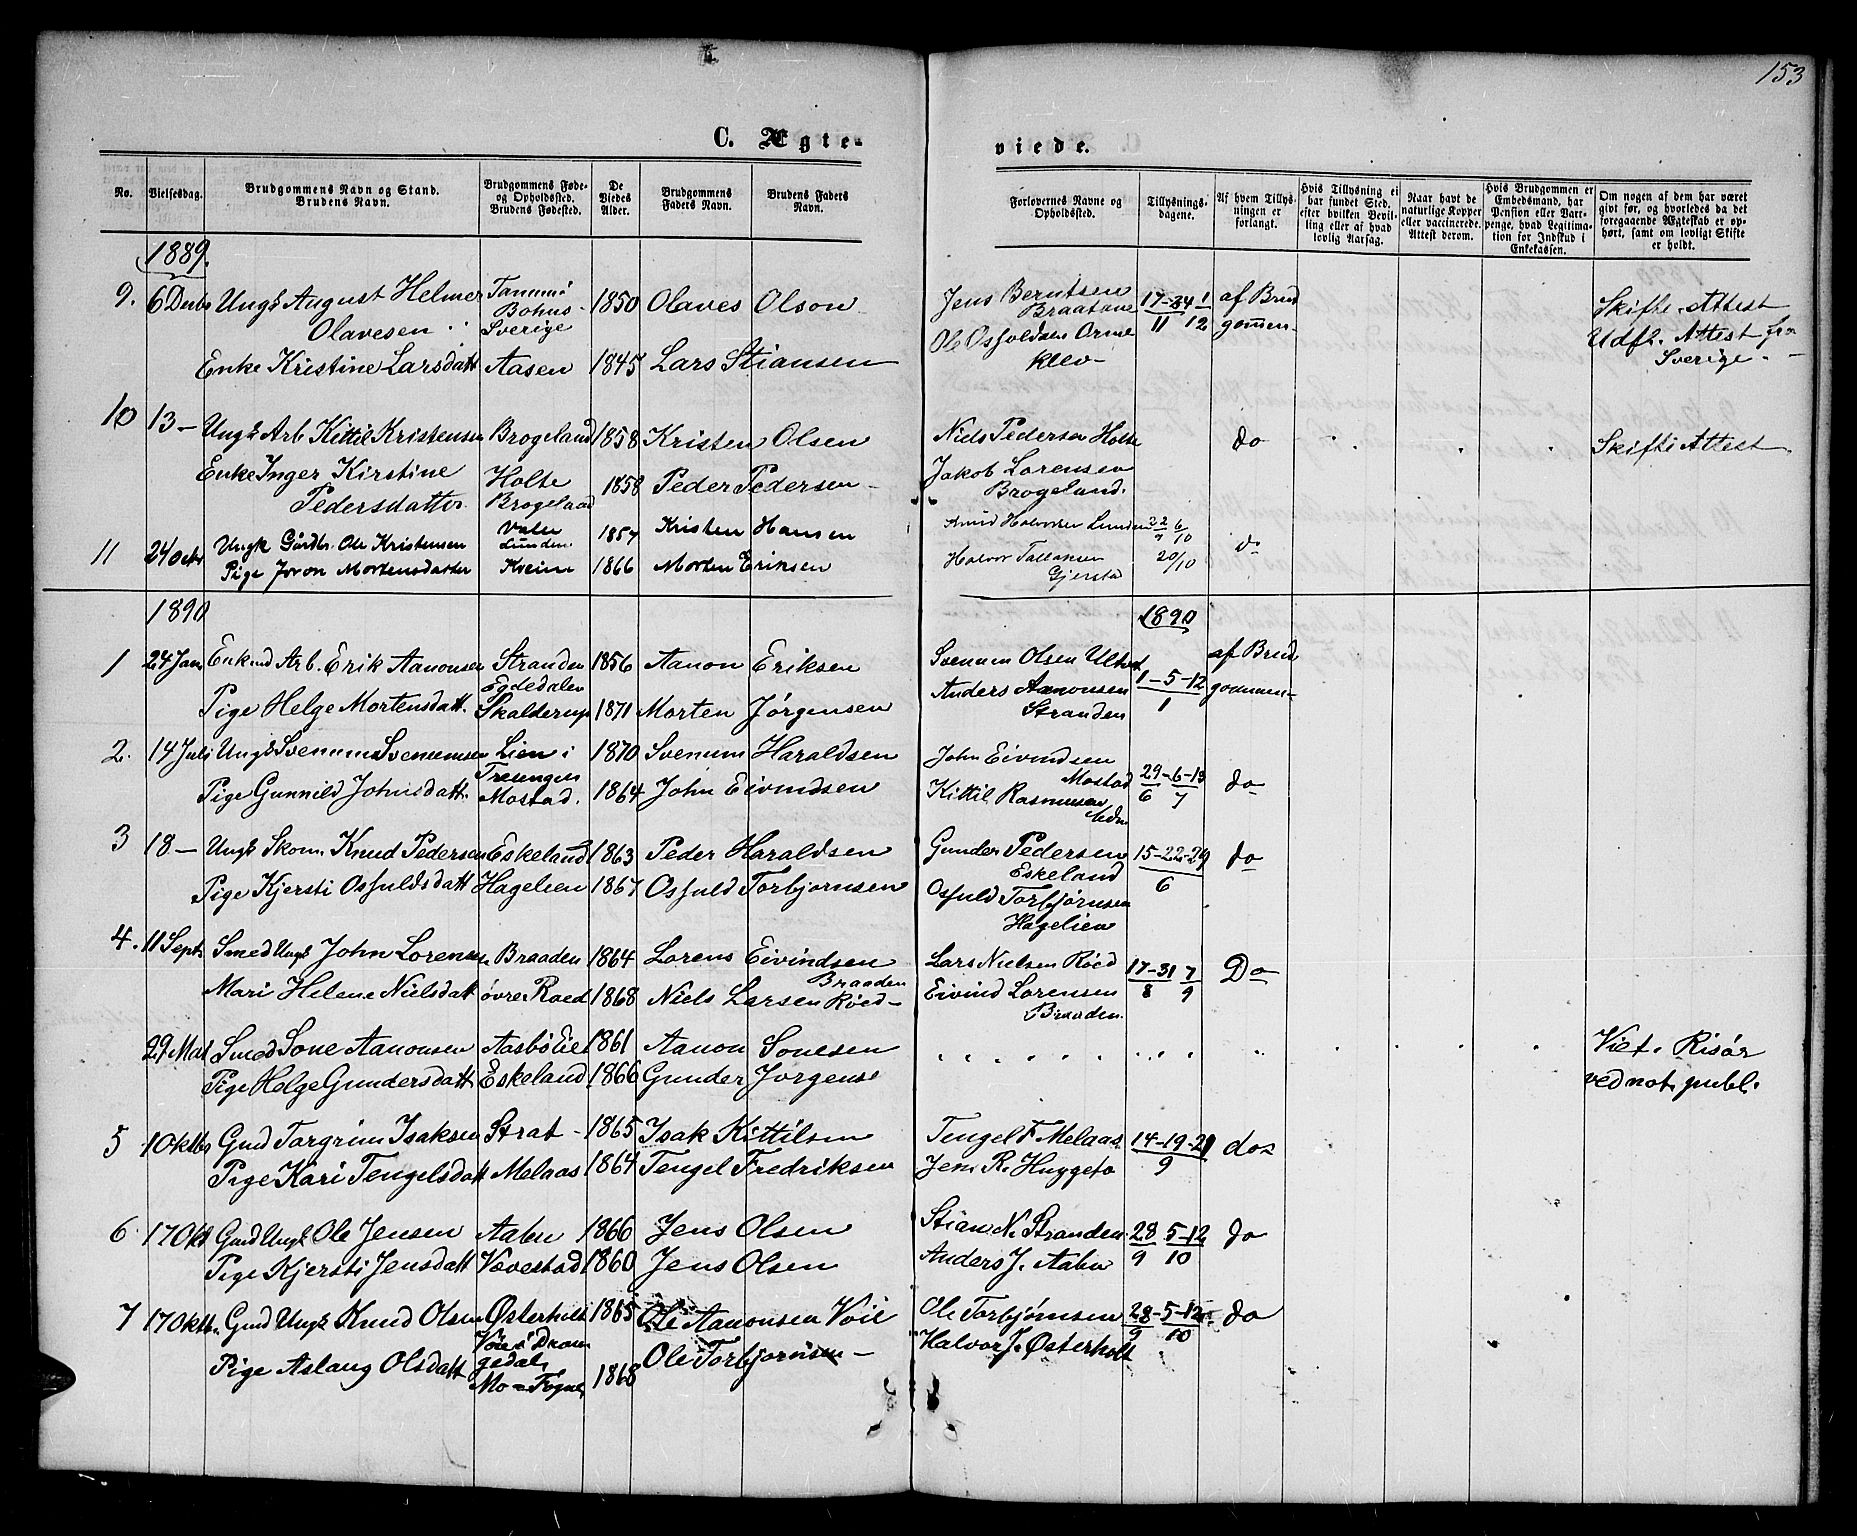 153
C. Ægte-
viede.
No.
Vielsesdag.
Brudgommens Navn og Stand.
Brudens Navn.
Brudgommens Føde-
og Opholdssted.
Brudens Fødested.
De
Viedes
Alder.
Brudgommens
Faders Navn.
Brudens Faders
Navn.
Forlovernes Navne og
Opholdssted.
Tillysnings-
dagene.
Af hvem Tillys-
ningen er
forlangt.
Hvis Tillysning ei
har fundet Sted,
efter hvilken Bevil-
ling eller af hvad
lovlig Aarsag.
Naar havt de
naturlige Kopper
eller vaccinerede.
Attest derom.
Hvis Brudgommen er
Embedsmand, har
Pension eller Vart-
penge, hvad Legitima-
tion for Indskud i
Enkekassen.
Om nogen af dem har været
gift før, og hvorledes da det
foregaaende Ægteskab er op-
hørt, samt om lovligt Skifte
er holdt.
1889.
9. 6 Decbr Ungk August Helmer Tanum i 1850 Olaves Olson Jens Berntsen 17-24 1 af Brud
Olavesen Bohus- Braatane 11 12 gommen Skifte-Attest
Sverige Ole Osfuldsen Orme Attest fra
Enke Kristine Larsdatt Aasen 1845 Lars Stiansen klev Sverige
10 13 - Ungk Arb Kittil Kristensen Brogeland 1858 Kristen Olsen Niels Pedersen Holte do Skifte Attest
Enke Inger Kirstine Holte 1858 Peder Pedersen Jakob Lorensen
Pedersdatter Brogeland Brogeland.
11 24 Octr Ungk Gårdbr. Ole Kristensen Lunden 1857 Kristen Hansen Knud Halvorsen Lunden 22 6/10 do
Pige Joron Mortensdatter Kveim 1866 Morten Eriksen Halvor Tallaksen 20/10
Gjerstad
1890 1890
1 24 Jan Enkmd Arb. Erik Aanonsen Stranden 1856 Aanon Eriksen Svenum Olsen af Brud
Egdedalen 1-5-12
Pige Helge Mortensdatt. Skalderup 1871 Morten Jørgensen Anders Aanonsen 1 gommen
Stranden
2. 14 Juli Ungk Svenum Svenumsen Lien i 1870 Svenum Haraldsen John Eivindsen
Treungen Mostad 29-6-13 do
Pige Gunnild Johnsdatt. Mostad. 1864 John Eivindsen Kittil Rasmusen 6 7
3 18 - Ungk Skom. Knud Pedersen Eskeland 1863 Peder Haraldsen Gunder Pedersen 15-22-29 do
Eskeland 6
Pige Kjersti Osfuldsdatt Hagelien 1867 Osfuld Torbjornsen Osfuld Torbjørnsen
Hagelien
4. 11 Sept. Smed Ungk John Lorensen Braaden 1864 Lorens Eivindsen Lars Nielsen Røed 17-31 7 Do
Braaden 8 9
Mari Helene Nielsdatt øvre Roed 1868 Niels Larsen Røed Eivind Lorensen
Braaden.
29 Mai Smed Sone Aanonsen Aasbø Eie 1861 Aanon Sonesen Viet i Risør
Pige Helge Gundersdatt Eskeland 1866 Gunder Jorgens ved not. publ.
5 1 Oktbr Gmd Torgrim Isaksen Strat 1865 Isak Kittilsen Tengel F. Melaas 14-19-21 do
Pige Kari Tengelsdatt Melaas 1864 Tengel Fredriksen Jens R. Huggeto 9
6 17 Okt Gmd Ungk Ole Jensen Aabu 1866 Jens Olsen Stian N. Stranden 28 5-12 do
Pige Kjersti Jensdatt Vævestad 1860 Jens Olsen Anders J. Aabu 9 10
7 17 Oktb. Gmd Ungk Knud Olsen Østerholt 1865 Ole Aanonsen Vøie Ole Torbjørnsen 28-5-12 do
Vøie i Dran 9 10
Pige Aslaug Olsdatt gedal 1868 Ole Torbjornsen Halvor J. Østerholt
Mo